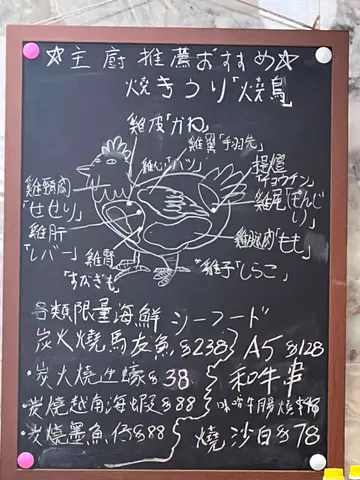 ☆主廚推薦おすすめ☆
燒きつり「燒鳥」
雞皮「かわ」
雞翼「手羽先」
雞心「ハツ」
提燈「チョウチン」
雞頸肉「せせり」
雞尾「ぼんじり」
雞肝「レバー」
雞腿肉「もも」
雞腎「すなぎも」
雞子「しらこ」
各類限量海鮮 シーフード
炭火燒馬友魚$238
A5 $128
和牛串
・炭火燒生蠔$38
・炭燒越南海蝦$88
・炭燒墨魚仔$88
燒沙白$78